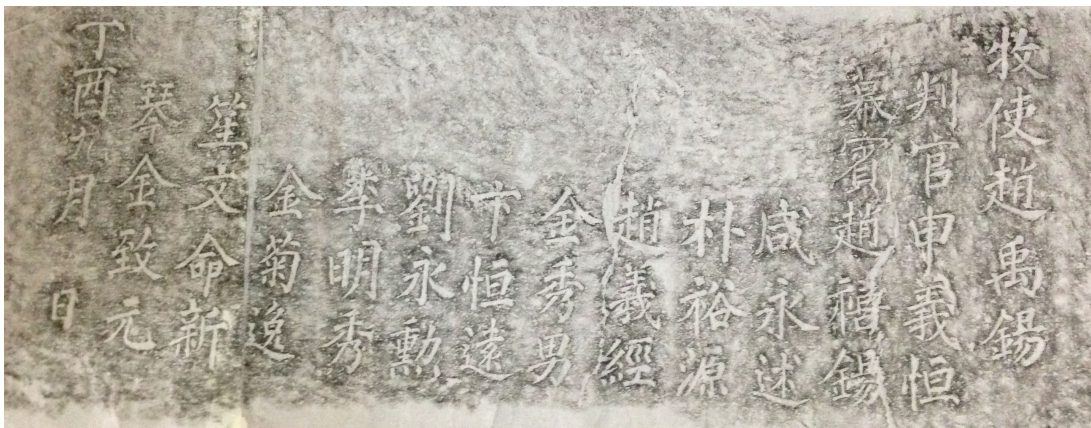 牧使趙禹錫
判官申義恒
幕賓趙禧錫
咸永述
朴裕源
趙義經
金秀男
卞恒遠
劉永勳
李明秀
金菊逸
笙文命新
琴金致元
丁酉九月　日